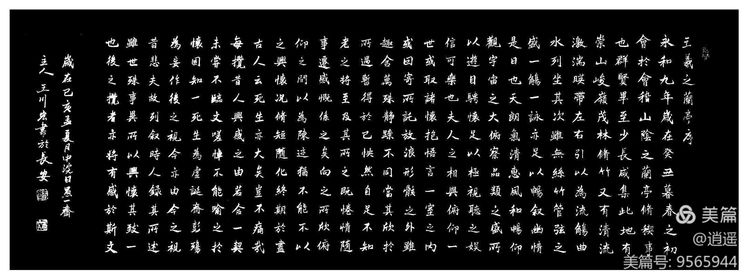 王羲之蘭亭序
永和九年歲在癸丑暮春之初
會於會稽山陰之蘭亭脩稧事
也群賢畢至少長咸集此地有
崇山峻嶺茂林脩竹又有清流
激湍暎帶左右引以為流觴曲
水列坐其次雖無絲竹管弦之
盛一觴一詠亦足以暢叙幽情
是日也天朗氣清惠風和暢仰
觀宇宙之大俯察品類之盛所
以遊目騁懷足以極視聽之娛
信可樂也夫人之相與俯仰一
世或取諸懷抱悟言一室之內
或因寄所託放浪形骸之外雖
趣舍萬殊靜躁不同當其欣於
所遇暫得於己快然自足不知
老之將至及其所之既惓情隨
事遷感慨係之矣向之所欣俯
仰之間以為陳迹猶不能不以
之興懷況脩短隨化終期於盡
古人云死生亦大矣豈不痛哉
每攬昔人興感之由若合一契
未嘗不臨文嗟悼不能喻之於
懷固知一死生為虛誕齊彭殤
為妄作後之視今亦由今之視
昔悲夫故列叙時人錄其所述
雖世殊事異所以興懷其致一
也後之攬者亦將有感於斯文
歲在己亥孟夏月中浣日墨一齋
主人王川書於長安
美篇
@逍遥
美篇号: 9565944